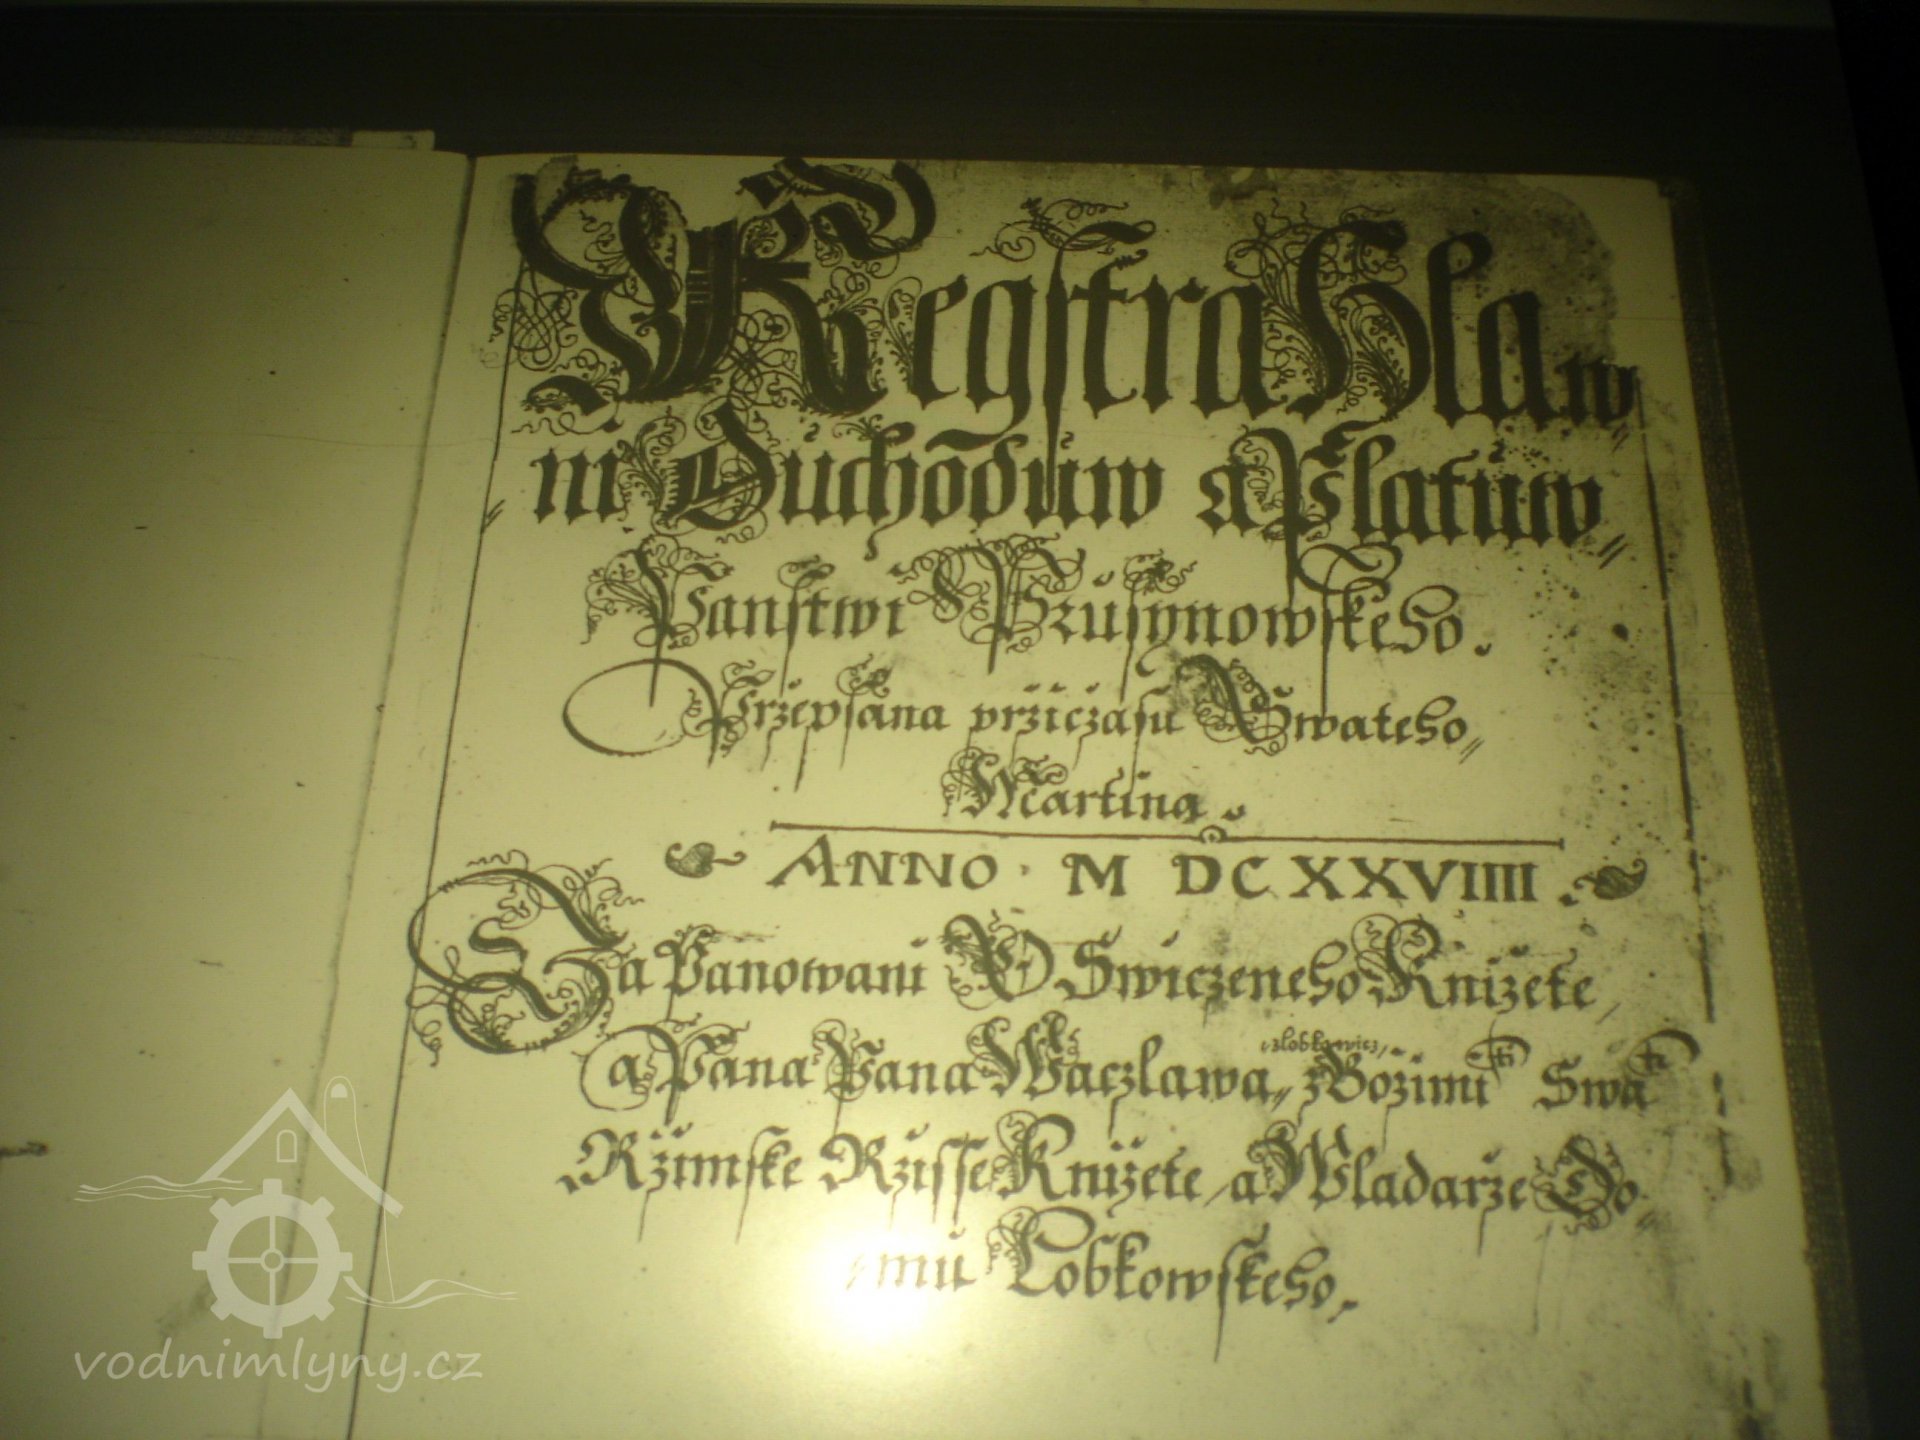 Regstra Hlaw„
ni Duchoduw a Platuw„
Panstwi Prusynowskeho.
Przepsanaprziczasu Swateho„
Martina.
ANNO · M DCXXVIIII.
Za Panowani OSwiczeneho Knižete,
zlobkowicz,
a Pana Pana Waczlawa„ z Bozimi Swa
Rzimske Rzisse Knižete, a Wladarze Do„
„mu Lobkowskeho.
vodnimlyny.cz